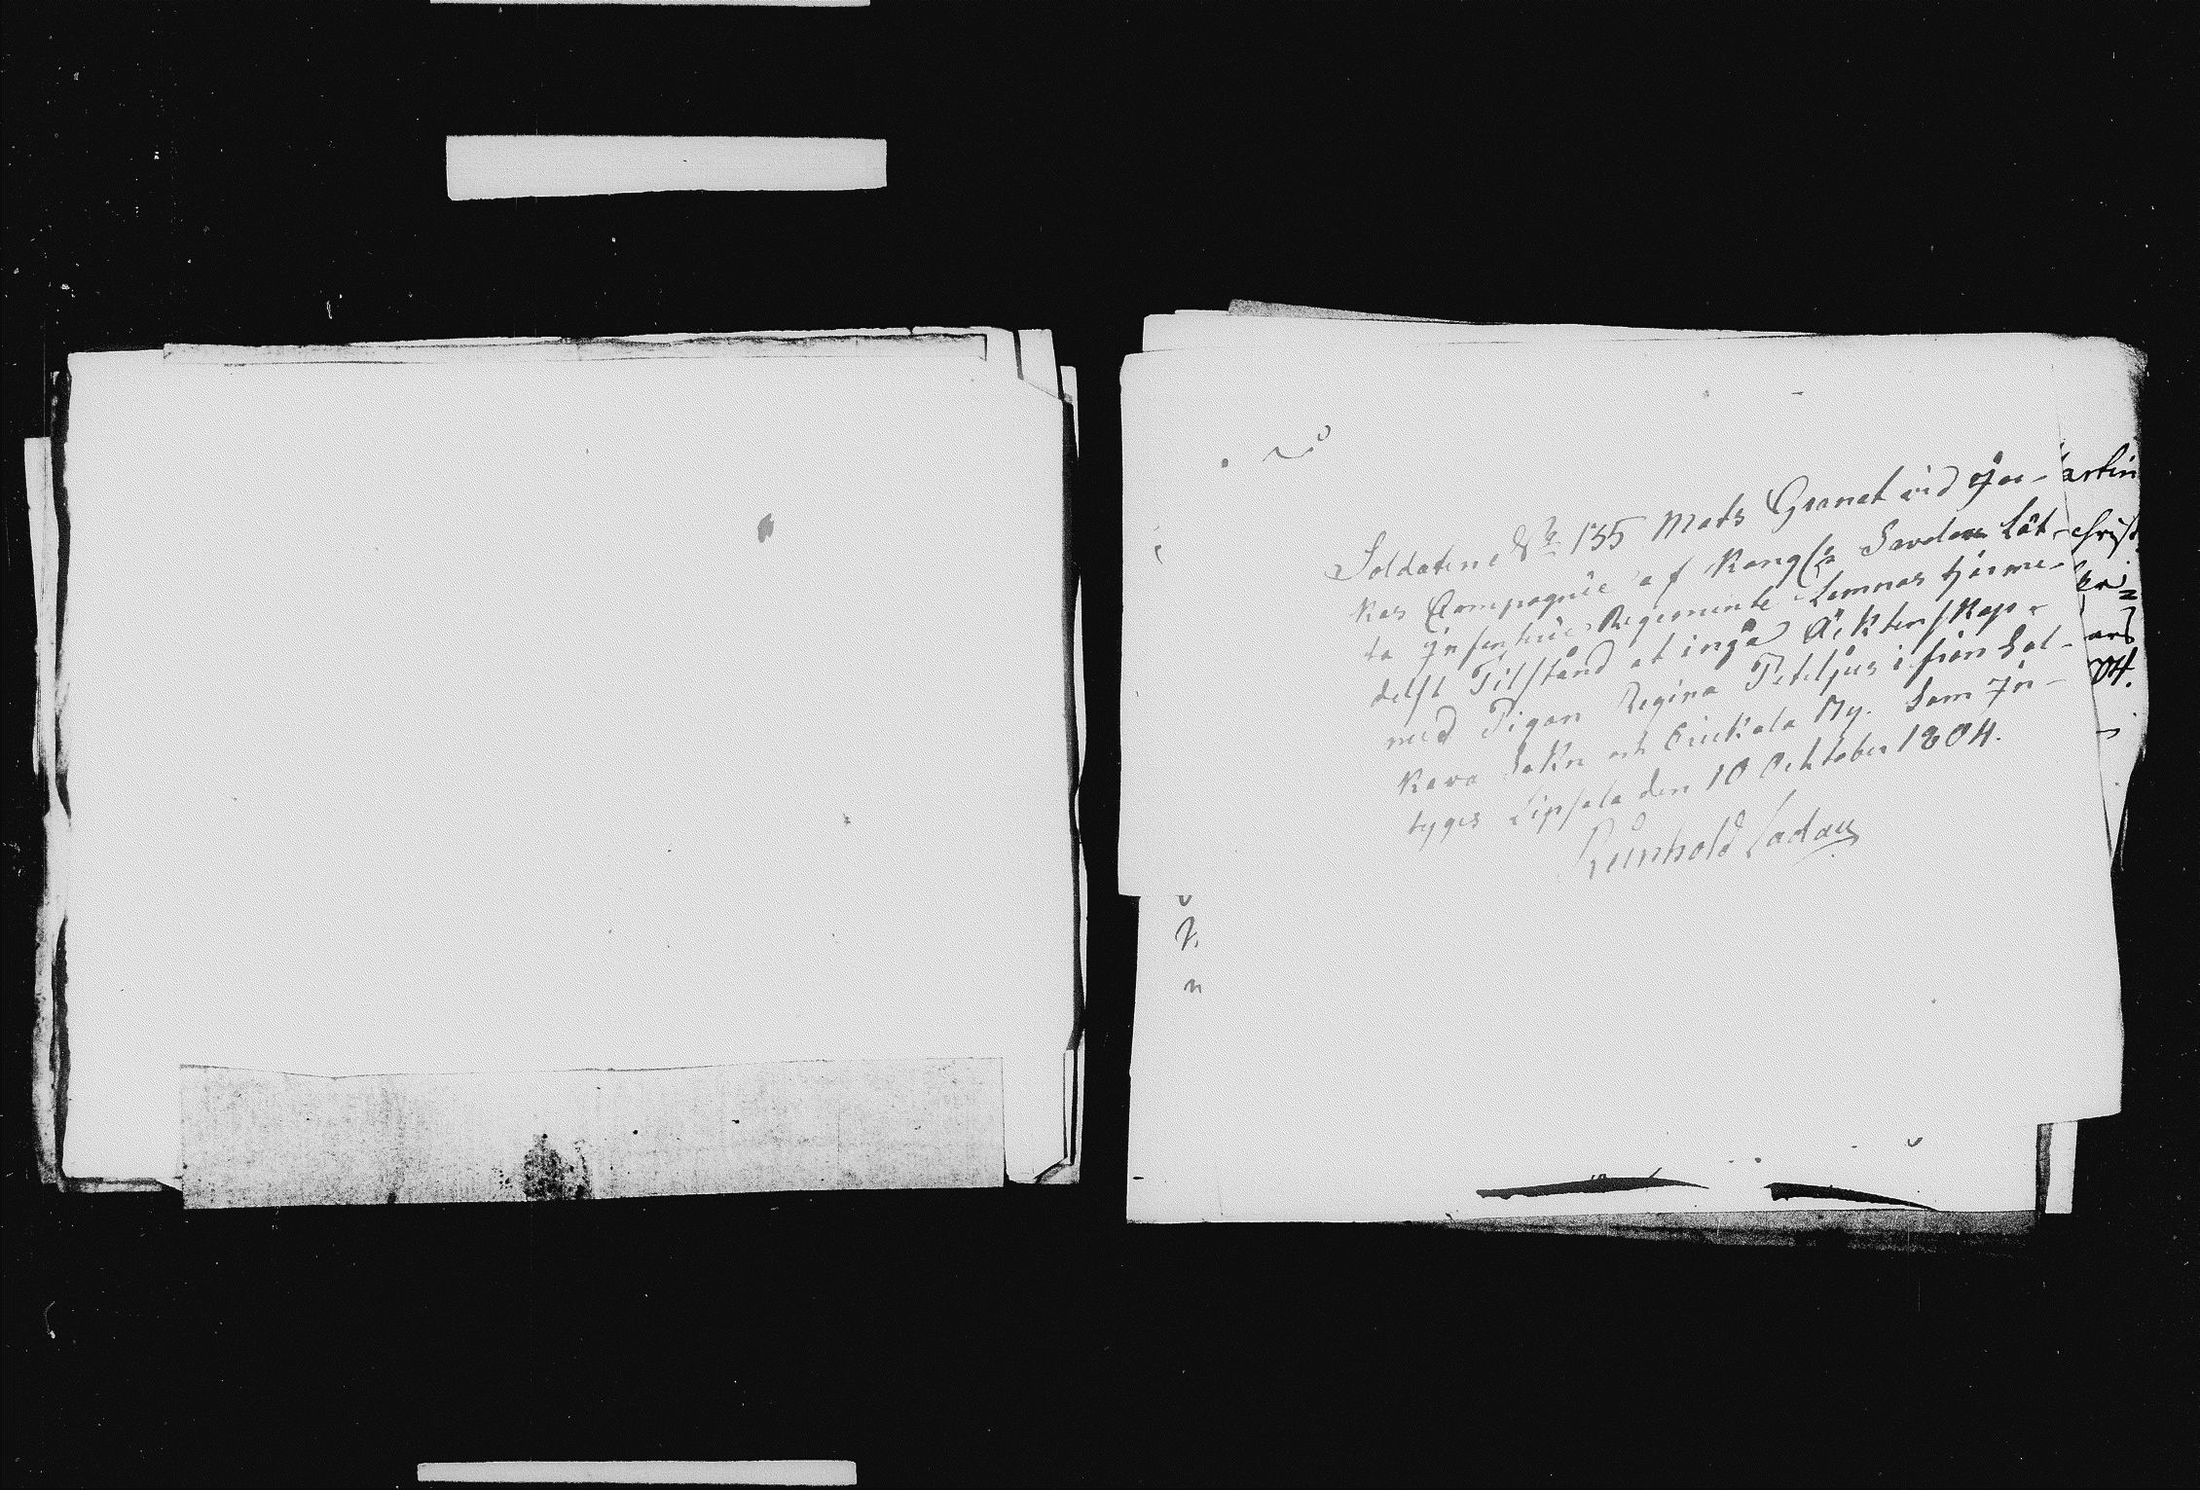 Soldaten N 135 Mats Granat vid Joc-
kas Compagnie af Kongl Savolax Lät-
ta Infanterie Regemente Lemnas härme-
delst Tilstånd at ingå Ächtenskap
med Pigan Regina Teteljus ifrån Sal-
kava Sokn och By. Som In-
tyges Lipsala den 10 Ochtober 1804.
Reinhold Ladau
04.